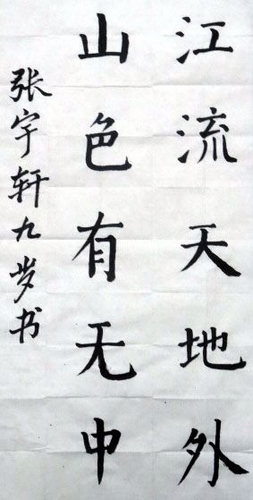 江流天地外
山色有无中
张宇轩九岁书